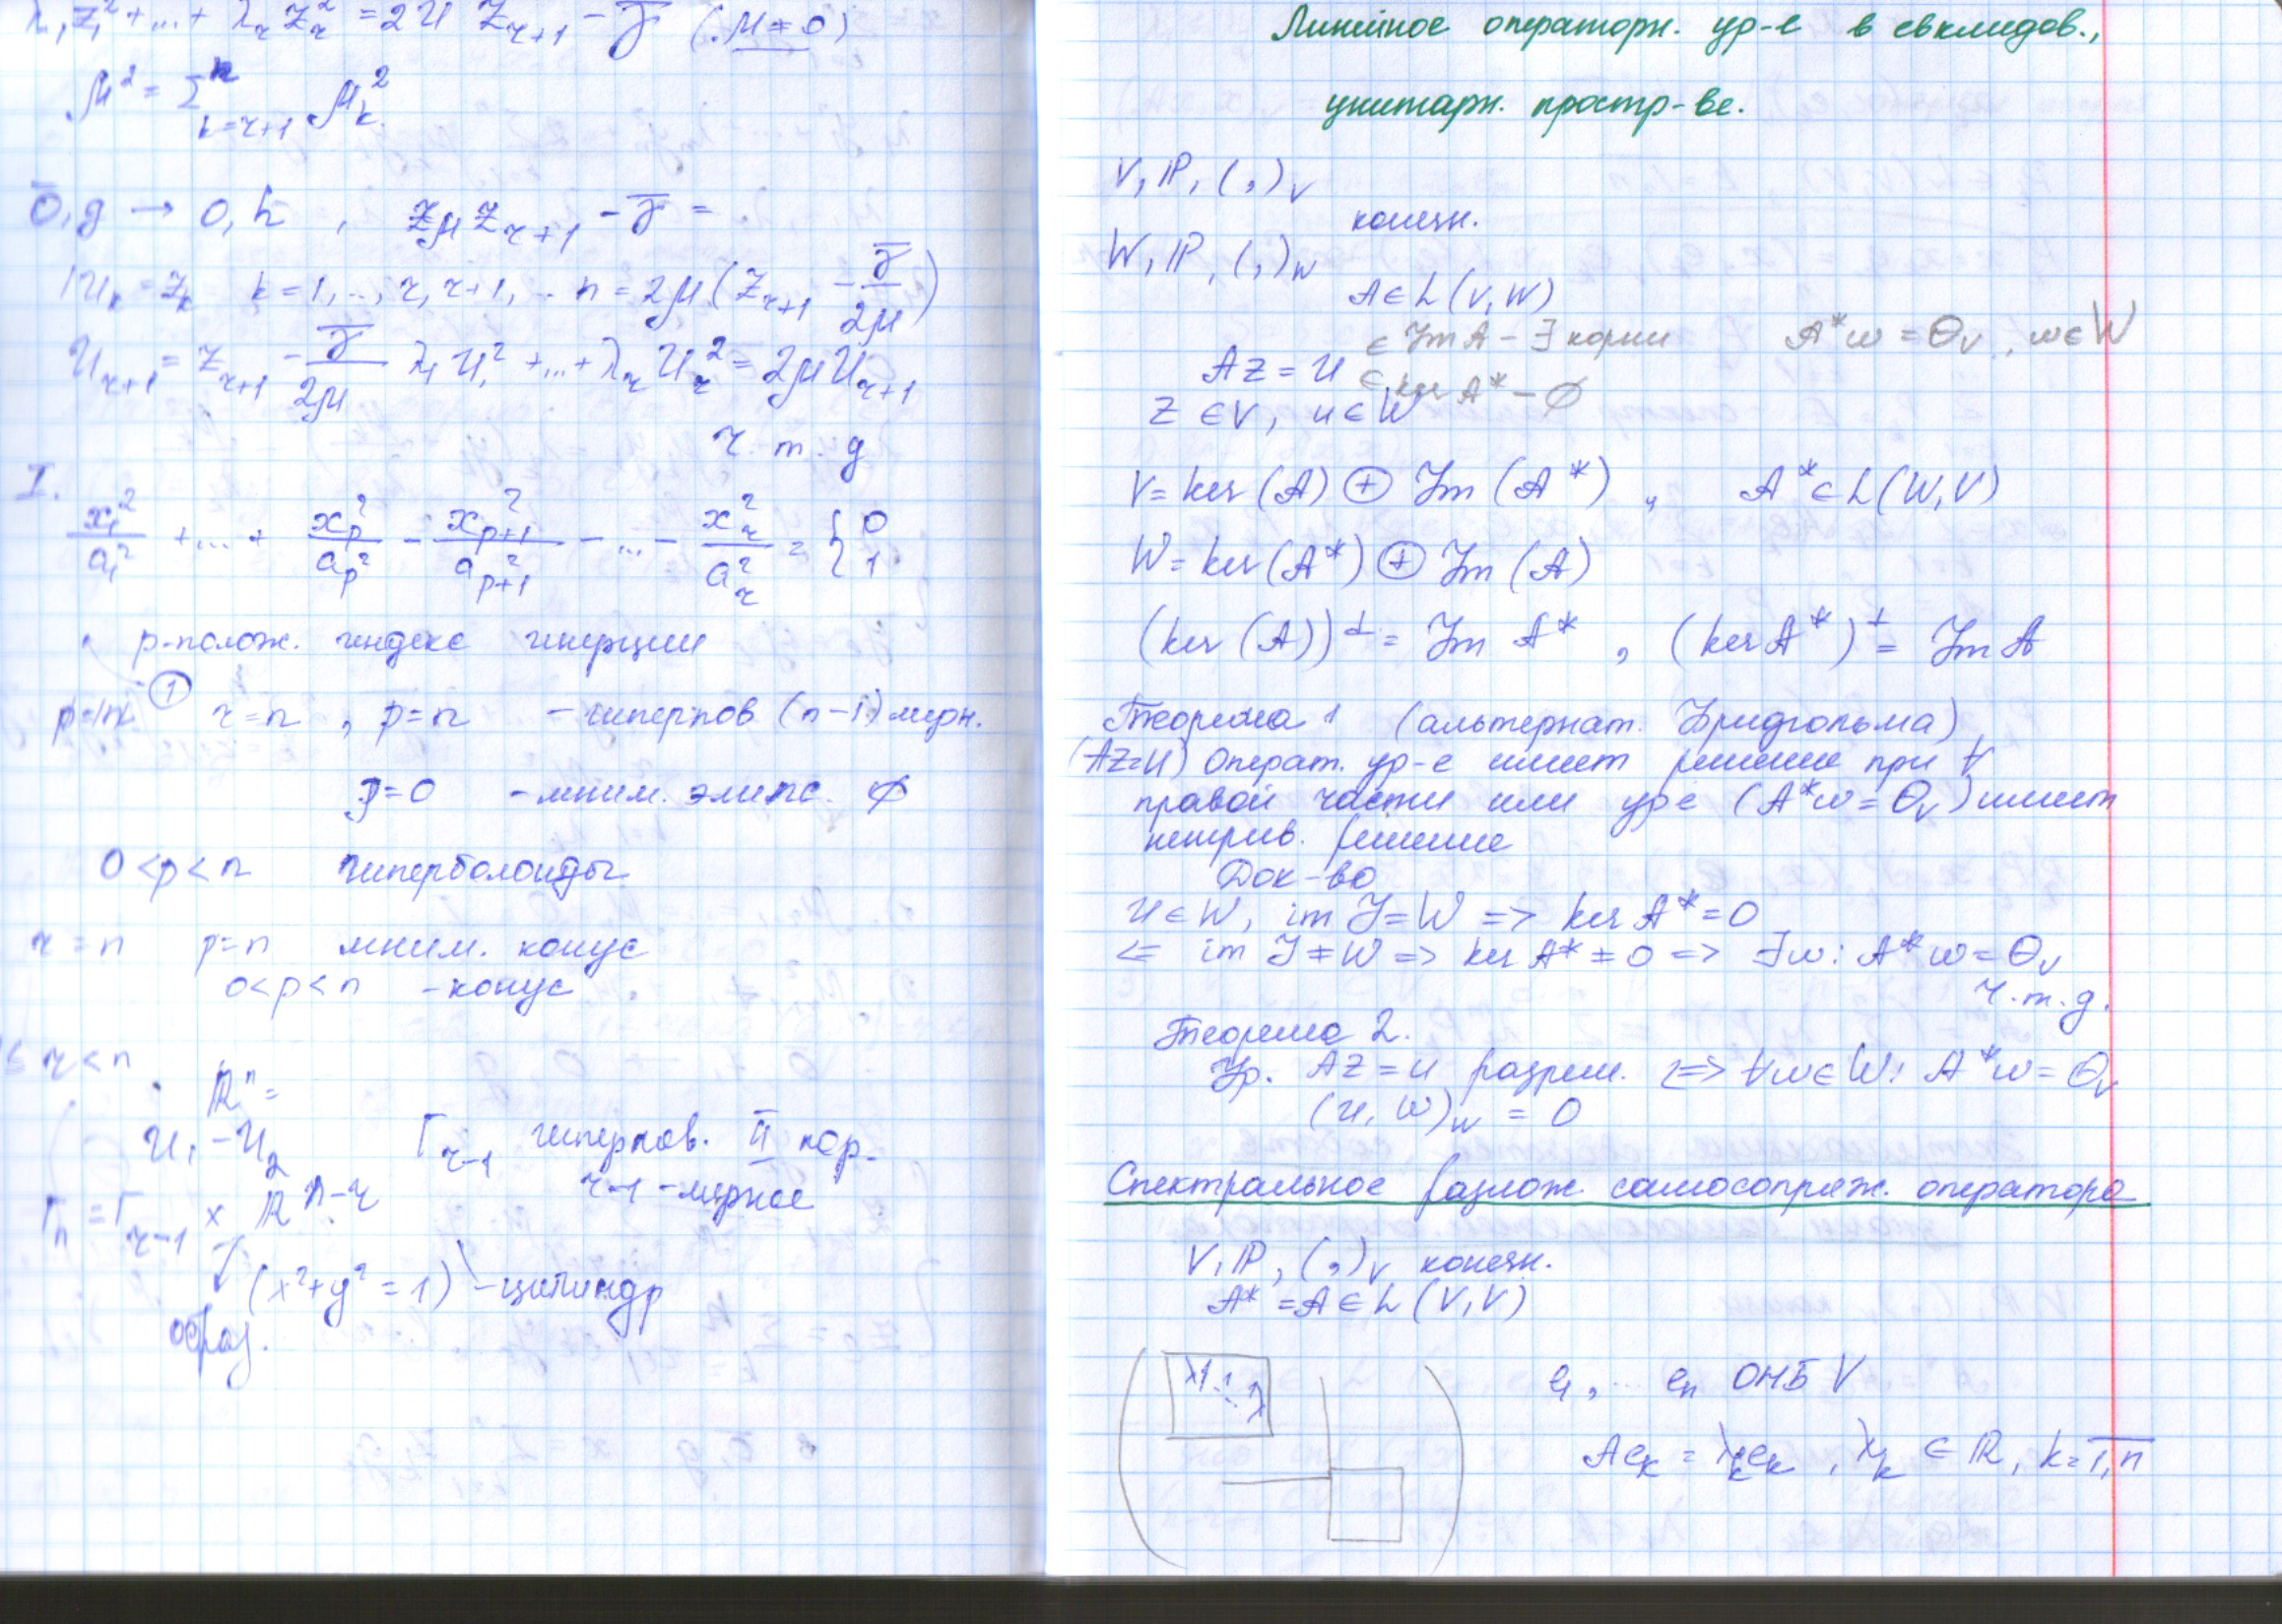 λ₁z₁² + ... + λ_r z_r² = 2μ z_{r+1} − γ̄ (μ ≠ 0)
μ² = Σ_{k=r+1}^n μ_k²
Ō, g → O, h , 2μ z_{r+1} − γ̄ =
u_k = z_k k = 1, .., r, r+1, .. n = 2μ(z_{r+1} − γ̄/2μ)
u_{r+1} = z_{r+1} − γ̄/2μ λ₁u₁² + ... + λ_r u_r² = 2μ u_{r+1}
ч. т. д
I.
x₁²/a₁² + ... + x_p²/a_p² − x_{p+1}²/a_{p+1}² − ... − x_r²/a_r² = { 0 1
p-полож. индекс инерции
① r = n , p = n - гиперпов (n−1) мерн.
p = 0 - мним. элипс. ∅
0 < p < n гиперболоиды
r = n p = n мним. конус
0 < p < n - конус
≤ r < n
ℝⁿ =
U₁ − U₂ Γ_{r−1} гиперпов. II пор.
r−1 - мерное
Γ_n = Γ_{r−1} × ℝ^{n−r}
↓ (x² + y² = 1) - цилиндр
образ.
Линейное операторн. ур-е в евклидов.,
унитарн. простр-ве.
V, ℙ, ( , )_V
конечн.
W, ℙ, ( , )_W
A ∈ L(V, W)
∈ Im A − ∃ корни A*w = Θ_V , w ∈ W
Az = u
∈ ker A* − ∅
z ∈ V, u ∈ W
V = ker(A) ⊕ Im(A*) , A* ∈ L(W, V)
W = ker(A*) ⊕ Im(A)
(ker(A))^⊥ = Im A* , (ker A*)^⊥ = Im A
Теорема 1 (альтернат. Фридгольма)
(Az=u) Операт. ур-е имеет решение при ∀
правой части или ур-е (A*w = Θ_V) имеет
нетрив. решение
Док-во
u ∈ W, im J = W => ker A* = 0
<= im J ≠ W => ker A* ≠ 0 => ∃w: A*w = Θ_V
ч. т. д.
Теорема 2.
Ур. Az = u разреш. <=> ∀w∈W: A*w = Θ_V
(u, w)_W = 0
Спектральное разлож. самосопряж. оператора
V, ℙ, ( , )_V конечн.
A* = A ∈ L(V, V)
λ1 ... λ
e₁, ... e_n ОНБ V
Ae_k = λ_k e_k , λ_k ∈ ℝ, k = 1,n